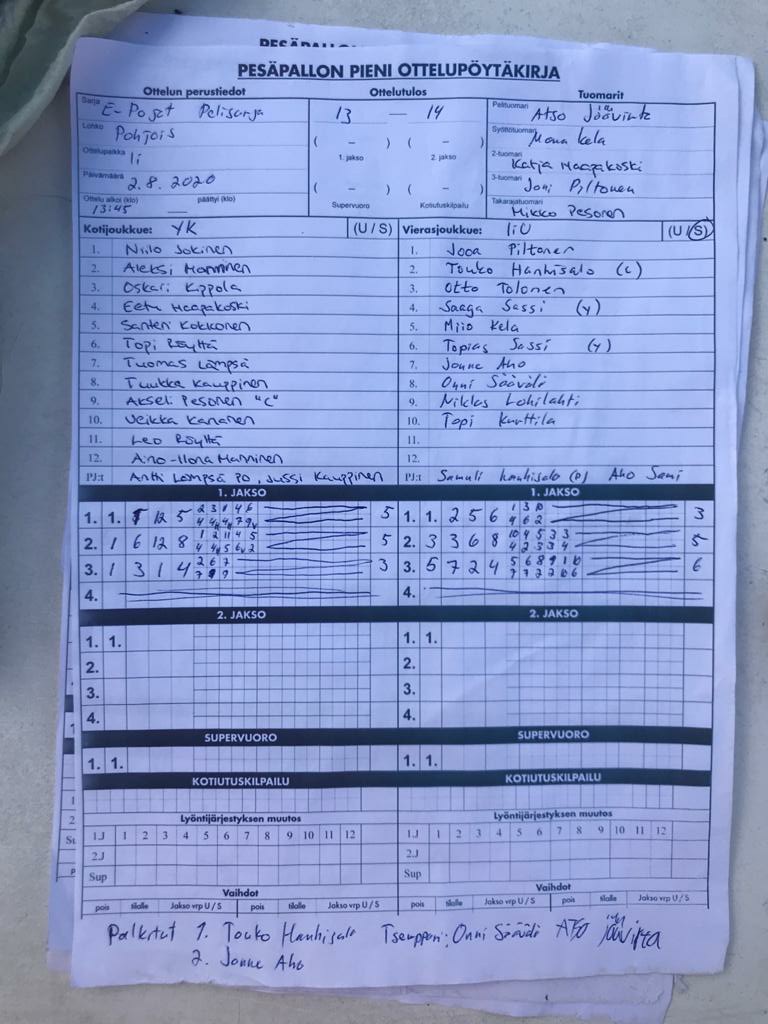 PESÄPALLON PIENI OTTELUPÖYTÄKIRJA
Ottelun perustiedot Ottelutulos Tuomarit
Sarja E-Pojat Pelisarja
Lohko Pohjois
Ottelupaikka Ii
Päivämäärä 2.8.2020
Ottelu alkoi (klo) päättyi (klo)
13:45 —
13 — 14
( – ) ( – )
1. jakso 2. jakso
( – ) ( – )
Supervuoro Kotiutuskilpailu
Pelituomari Atso
Syöttötuomari Mona Kela
2-tuomari Katja Haapakoski
3-tuomari Joni Piltonen
Takarajatuomari Mikko Pesonen
Kotijoukkue: YK (U / S)
1. Niilo Jokinen
2. Aleksi Manninen
3. Oskari Kippola
4. Eetu Haapakoski
5. Santeri Kokkonen
6. Topi Röyttä
7. Tuomas Lämpsä
8. Tuukka Kauppinen
9. Akseli Pesonen "C"
10. Veikka Kananen
11. Leo Röyttä
12. Aino-Ilona Manninen
PJ:t Antti Lämpsä PO, Jussi Kauppinen
Vierasjoukkue: IiU (U / S)
1. Jooa Piltonen
2. Touko Hanhisalo (c)
3. Otto Tolonen
4. Saaga Sassi (y)
5. Miio Kela
6. Topias Sassi (y)
7. Jonne Aho
8. Onni Säävälä
9. Niklas Lohilahti
10. Topi Kurttila
11.
12.
PJ:t Samuli Hanhisalo (p) Aho Sami
1. JAKSO 1. JAKSO
1. 1. 12 5 5
2. 1 6 12 8 5
3. 1 3 1 4 3
4.
1. 1. 2 5 6 3
2. 3 3 6 8 5
3. 5 7 2 4 6
4.
2. JAKSO 2. JAKSO
1. 1. 1. 1.
2. 2.
3. 3.
4. 4.
SUPERVUORO SUPERVUORO
1. 1. 1. 1.
KOTIUTUSKILPAILU KOTIUTUSKILPAILU
Lyöntijärjestyksen muutos Lyöntijärjestyksen muutos
1.J 1 2 3 4 5 6 7 8 9 10 11 12 1.J 1 2 3 4 5 6 7 8 9 10 11 12
2.J 2.J
Sup Sup
Vaihdot Vaihdot
pois tilalle Jakso vrp U / S pois tilalle Jakso vrp U / S pois tilalle Jakso vrp U / S pois tilalle Jakso vrp U / S
Palkitut 1. Touko Hanhisalo Tsemppari: Onni Säävälä Atso
2. Jonne Aho